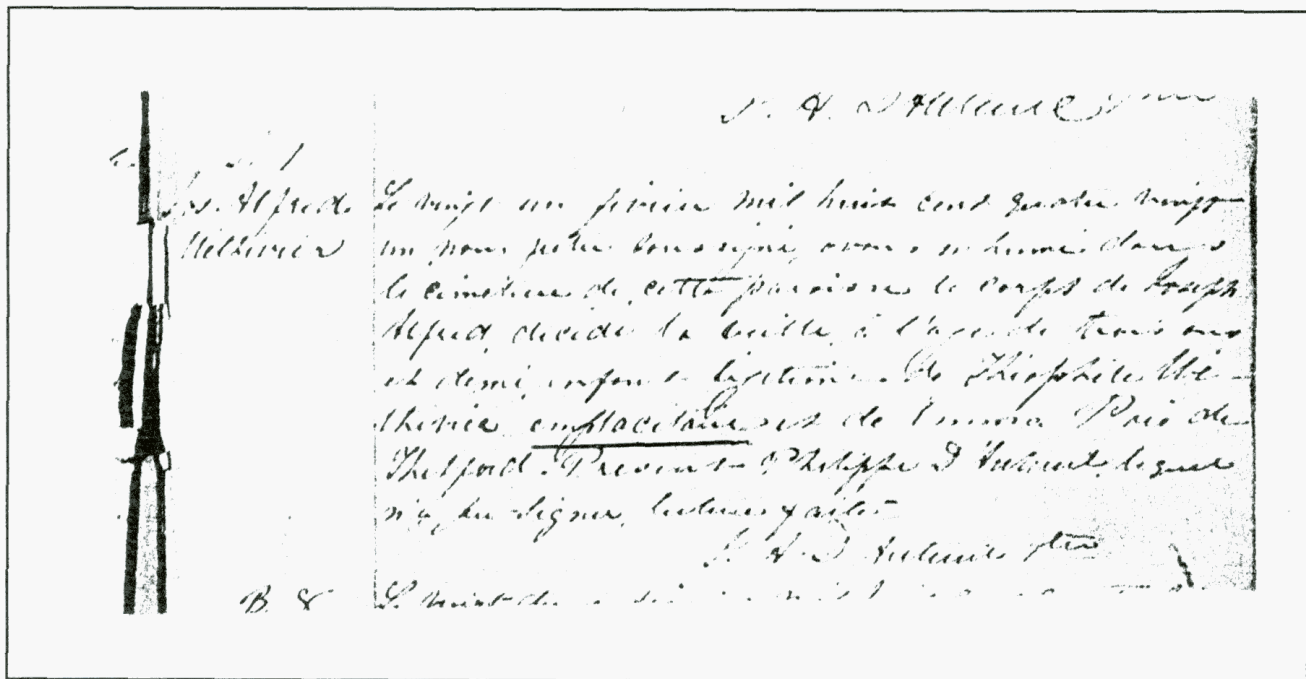 Jos. Alfred
Méthivier
Le vingt un février mil huit cent quatre vingt
un, nous prêtre soussigné, avons inhumé dans
le cimetière de cette paroisse le corps de Joseph
Alfred, décédé la veille, à l'age de trois ans
et demi, enfant légitime de Théophile Mé-
thivier emplacitaire et de Emma
Thetford. Présent Philippe lequel
n'a pu signer, lecture faite
B. 8